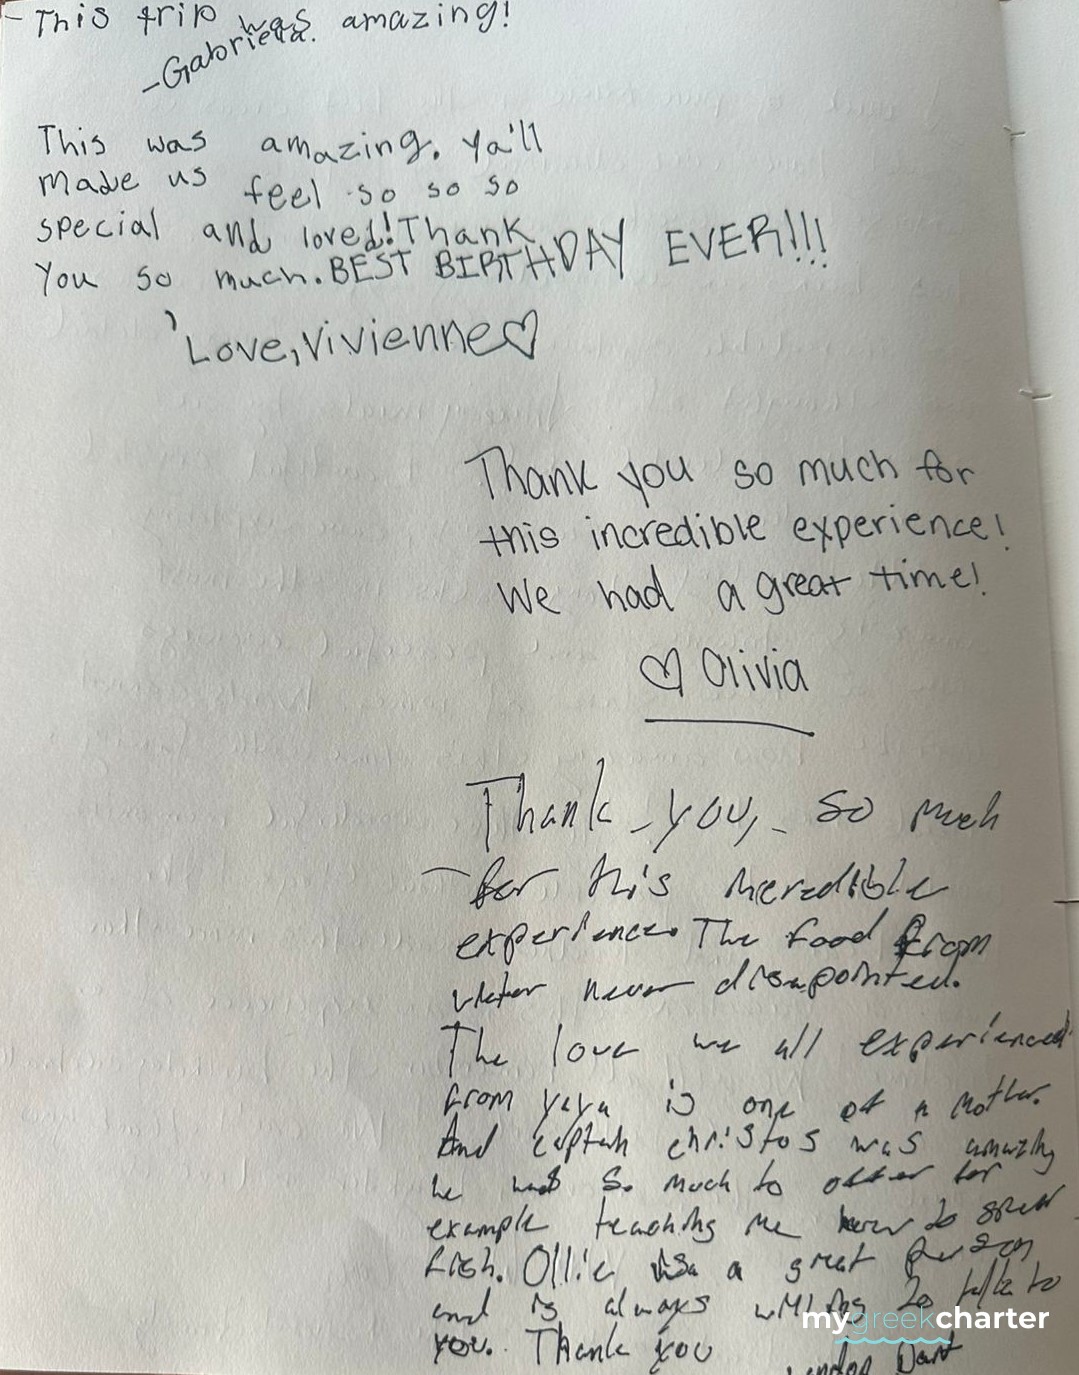 - This trip was amazing!
-Gabriela.
This was amazing. Ya'll
made us feel so so so
special and loved! Thank
You so much. BEST BIRTHDAY EVER!!!
Love, Vivienne♡
Thank you so much for
this incredible experience!
We had a great time!
♡ Olivia
Thank you, so much
for this incredible
experience. The food from
victor never disapointed.
The love we all experienced
from yaya is one of a mother.
And captain christos was amazing
he had so much to offer for
example teaching me how to spear
fish. Ollie is a great person
and is always willing to talk to
you. Thank you
Dart
mygreekcharter